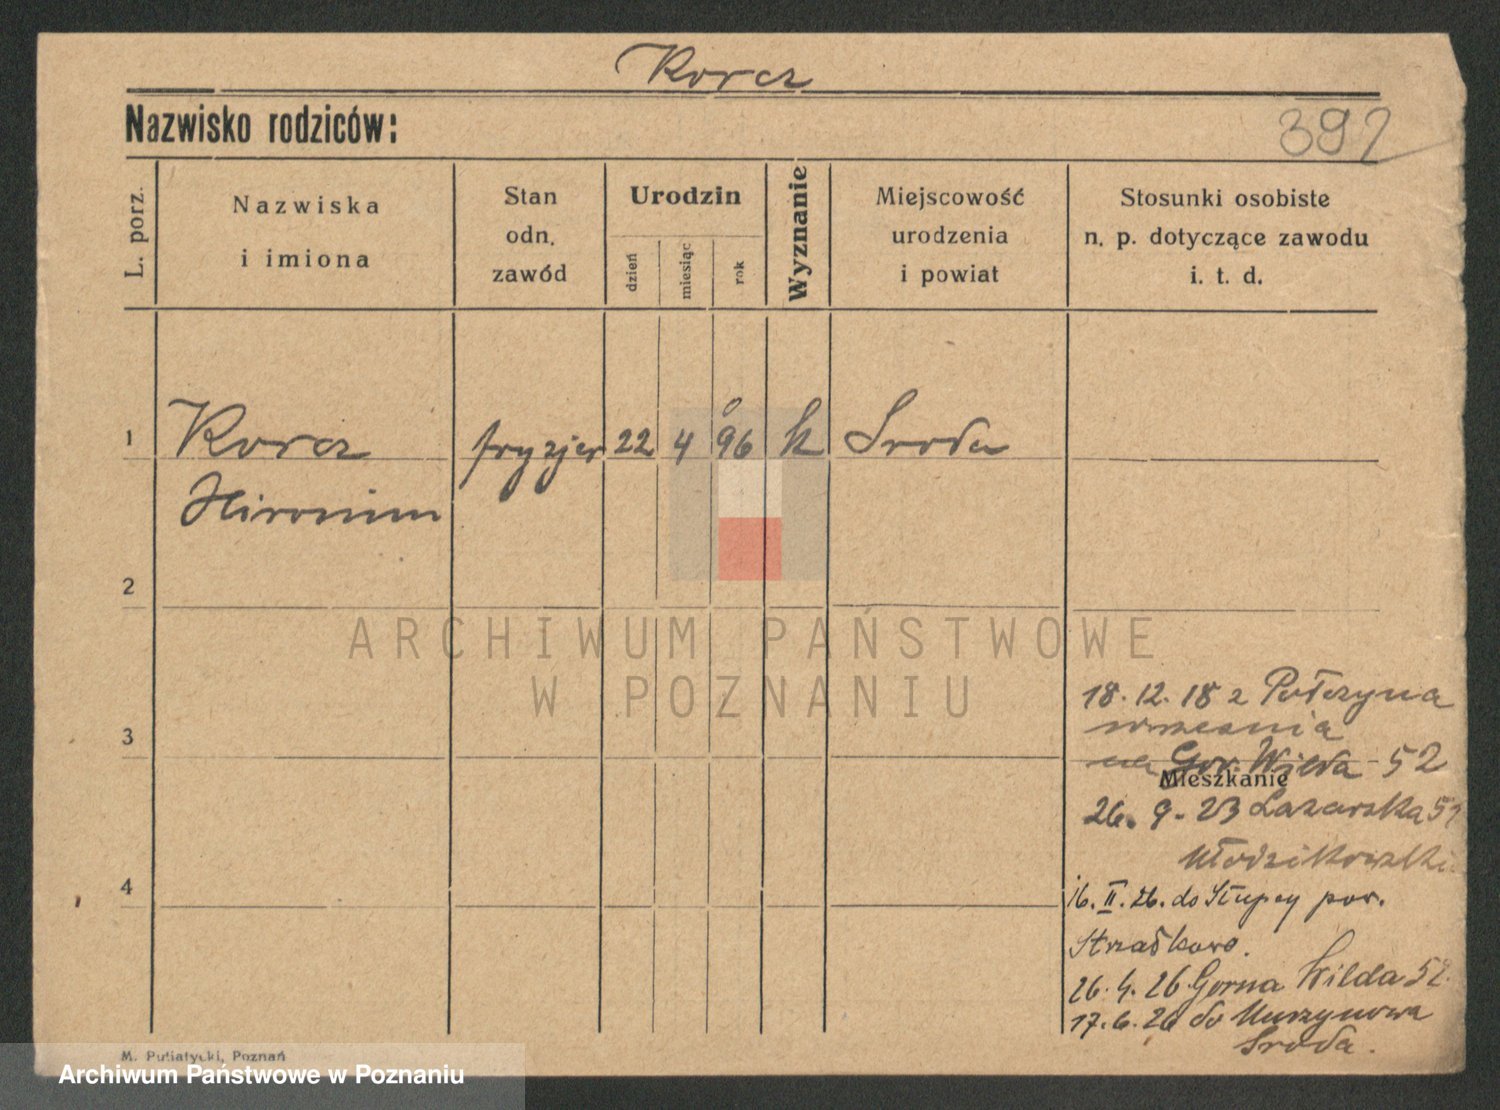 Korcz
Nazwisko rodziców:
392
L. porz.
Nazwiska
i imiona
Stan
odn.
zawód
Urodzin
dzień
miesiąc
rok
Wyznanie
Miejscowość
urodzenia
i powiat
Stosunki osobiste
n. p. dotyczące zawodu
i. t. d.
1
Korcz
Hironim
fryzjer
22
4
96
k
Sroda
2
ARCHIWUM PAŃSTWOWE
W POZNANIU
3
18.12.18 z Połczyna
na Gor. Wilda 52
Mieszkanie
26. 9. 23 Lazarska
4
16. II. 26. do Słupcy pow.
Strzałkowo.
26. 4. 26 Gorna Wilda 52.
17. 6. 26 do Murzynowa
Sroda.
M. Putiatycki, Poznań
Archiwum Państwowe w Poznaniu